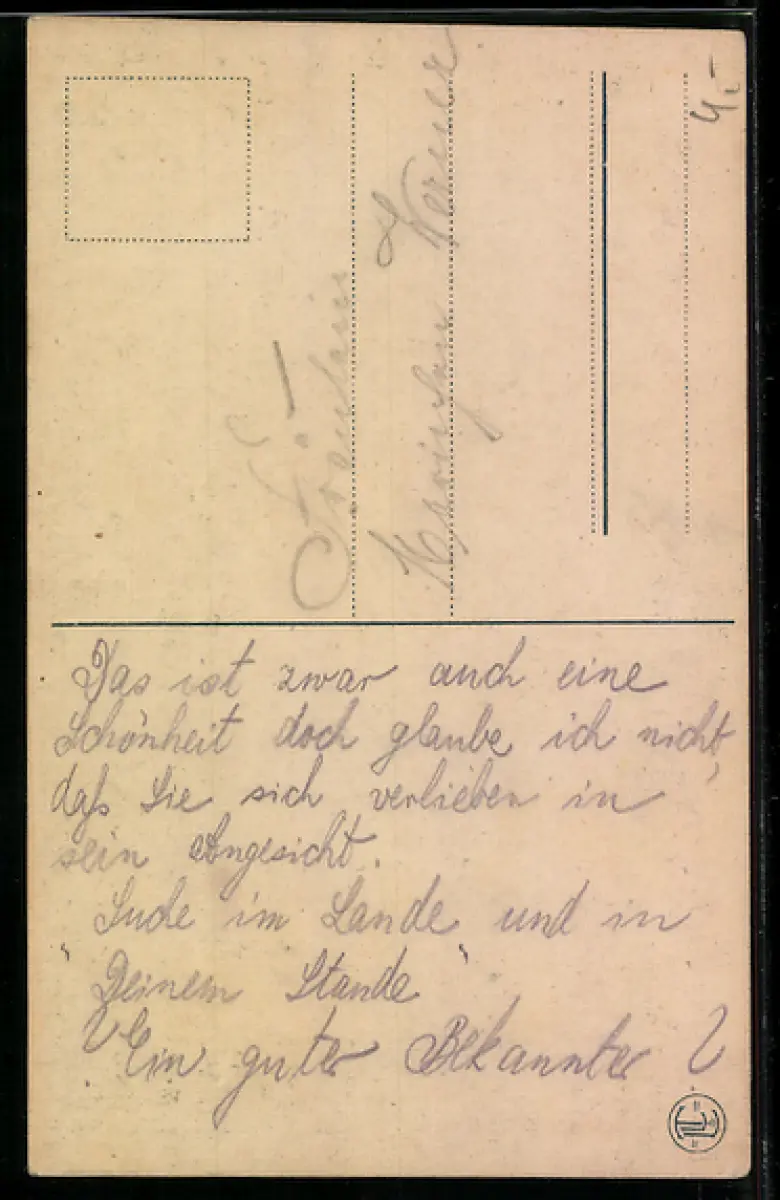 Fräulein
Werner
4,-
Das ist zwar auch eine
Schönheit doch glaube ich nicht,
daß Sie sich verlieben in
sein Angesicht.
Suche im Lande und in
" Deinem Stande "
? Ein guter Bekannter ?